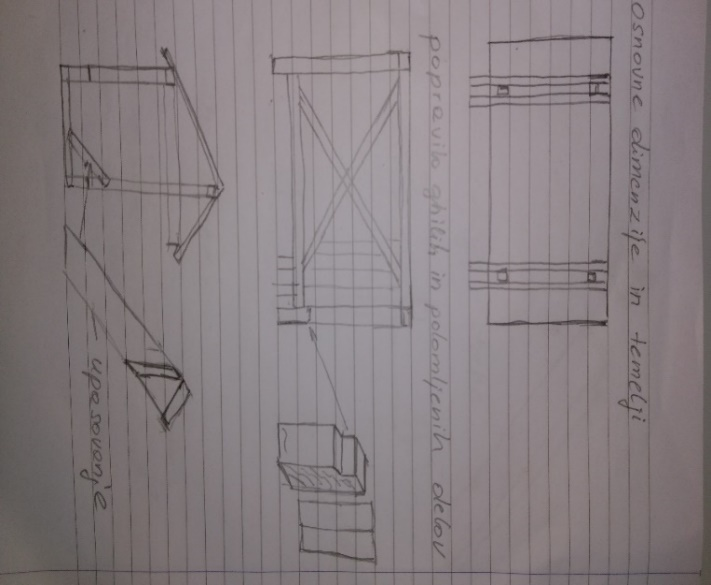 osnovne dimenzije in temelji
popravilo ghilih in polomljenih delov
upasovanje